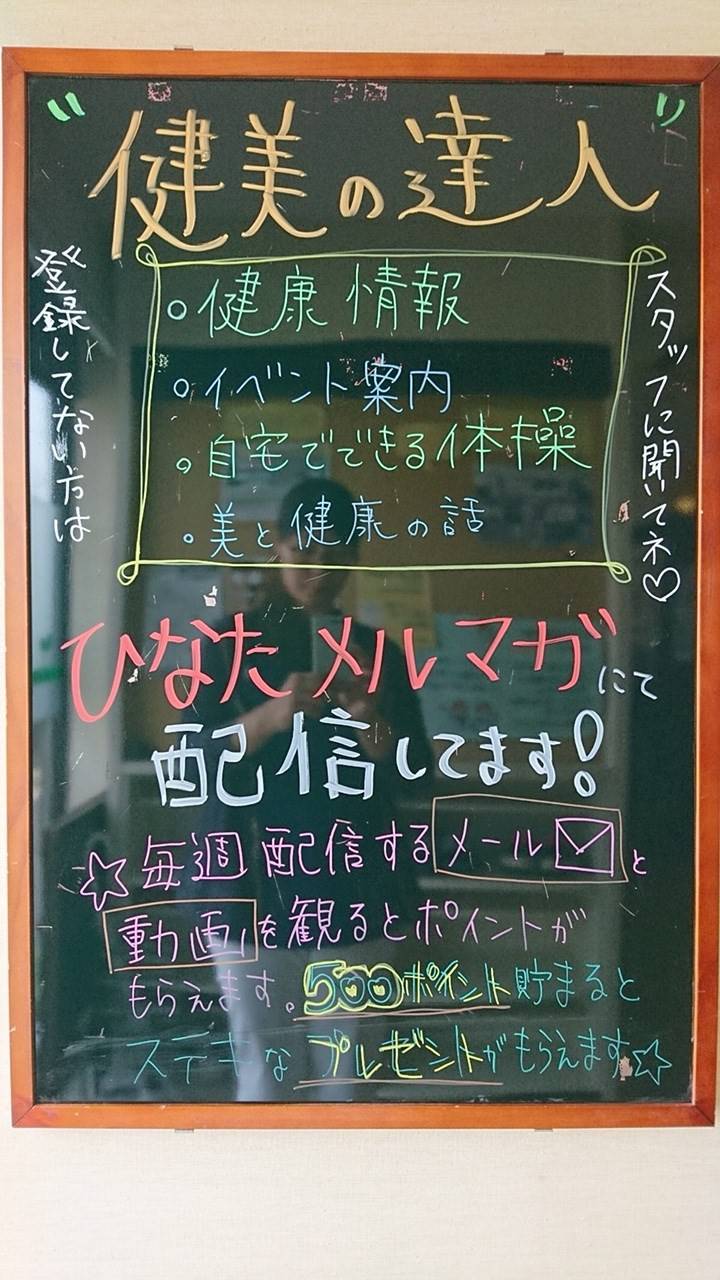 〃健美の達人〃
。健康情報
。イベント案内
。自宅でできる体操
。美と健康の話
登録してない方は
スタッフに聞いてネ♡
ひなたメルマガにて
配信してます!
☆毎週配信するメール✉と
動画を観るとポイントが
もらえます。500ポイント貯まると
ステキなプレゼントがもらえます☆